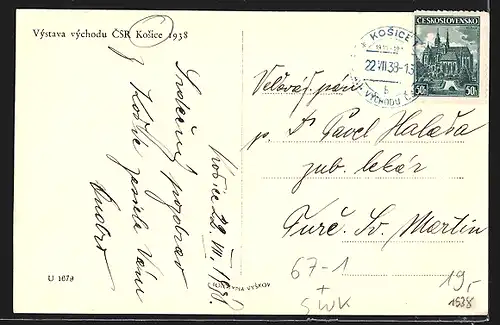 Výstava východu ČSR Košice 1938
Srdečný pozdrav
z Košic
Košice 22. VII. 1938.
U 1679
KOŠICE
22 VII. 38-13
b
VÝCHODU ČSR
ČESKOSLOVENSKO
50h
50h
Veľaváž. pán
p. Dr Pavel Halaša
zub. lekár
Turč. Sv. Martin
67-1
+
SWK
19,-
1538